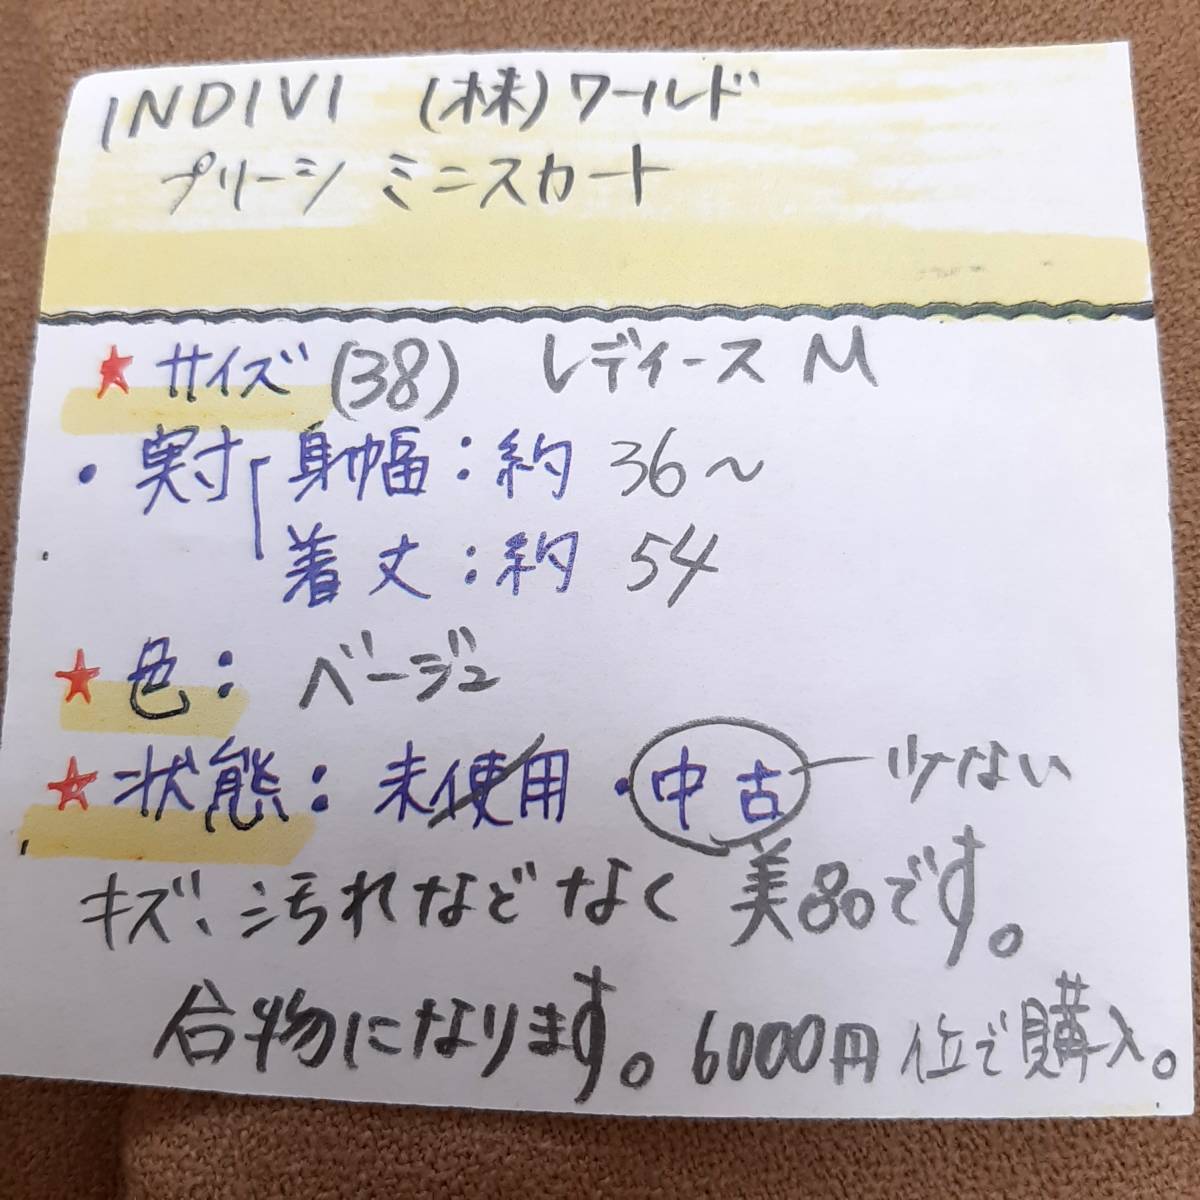 INDIVI (株)ワールド
プリーシ ミニスカート
★ サイズ (38) レディース M
・実寸「身幅:約 36～
着丈:約 54
★ 色: ベージュ
★ 状態: 未使用・中古ー少ない
キズ、汚れなどなく 美品です。
合物になります。6000円 位で購入。